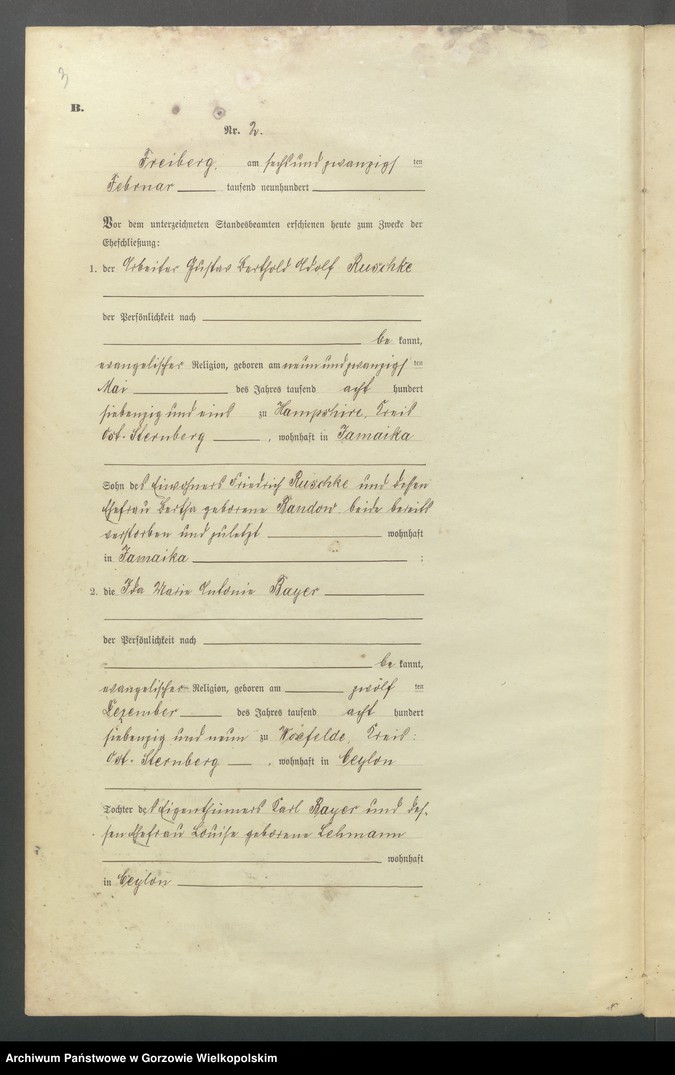 3
B.
Nr. 2.
Freiberg, am sechsundzwanzigsten
Februar tausend neunhundert
Vor dem unterzeichneten Standesbeamten erschienen heute zum Zwecke der
Eheschließung:
1. der Arbeiter Gustav Berthold Adolf Ruschke
der Persönlichkeit nach
be kannt,
evangelischer Religion, geboren am neunundzwanzigsten
Mai des Jahres tausend acht hundert
siebenzig und eins zu Hampshire, Kreis
Ost-Sternberg, wohnhaft in Jamaika
Sohn des Einwohners Friedrich Ruschke und dessen
Ehefrau Bertha geborene Bandow beide bereits
verstorben und zuletzt wohnhaft
in Jamaika ;
2. die Ida Marie Antonie Bayer
der Persönlichkeit nach
be kannt,
evangelischer Religion, geboren am zwölf ten
Dezember des Jahres tausend acht hundert
siebenzig und neun zu Woxfelde, Kreis:
Ost-Sternberg, wohnhaft in Ceylon
Tochter des Eigenthümers Karl Bayer und des-
sen Ehefrau Louise geborene Lehmann
wohnhaft
in Ceylon
Archiwum Państwowe w Gorzowie Wielkopolskim